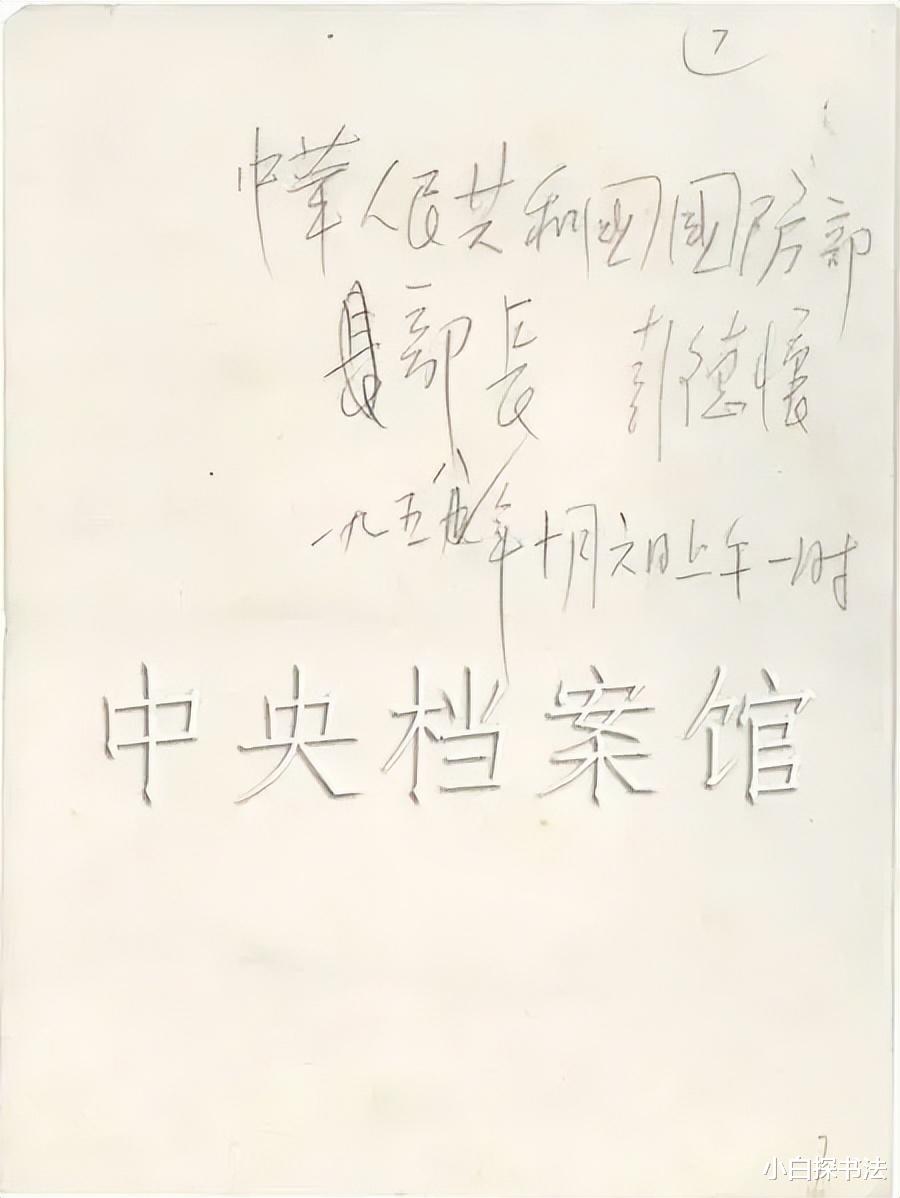 7
中华人民共和国國防部
部長 彭德懷
一九五八年十月六日上午一时
中央档案馆
7
小白探书法